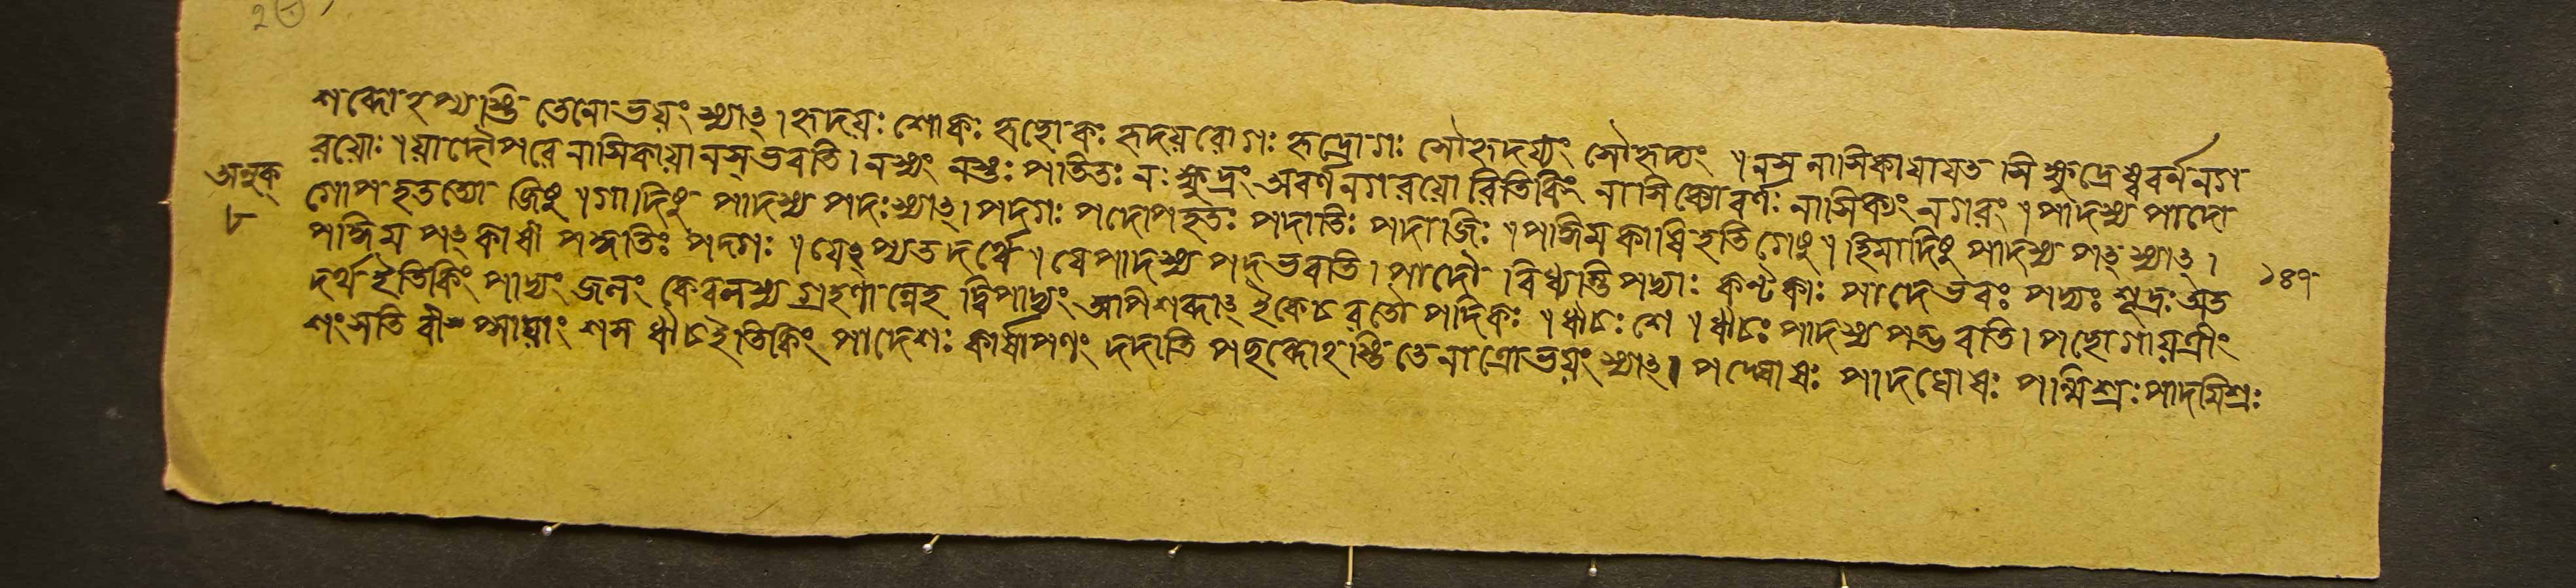 শব্দোঽপ্যস্তি তেনোভয়ং স্যাৎ। হৃদয়ঃ শোকঃ হৃচ্ছোকঃ হৃদয়রোগঃ হৃদ্রোগঃ সৌহৃদয়্যং সৌহৃদ্যং । নস নাসিকায়াযত সি ক্ষুদ্রেষ্ববর্ননগ
রয়োঃ । য়াদৌপরে নাসিকায়ানস্ ভবতি। নস্যং নস্তঃ পতিতঃ নঃক্ষুদ্রং অবর্ণনগরয়োরিতিকিং নাসিক্যোবর্ণঃ নাসিক্যং নগরং । পাদস্য পাদো
গোপহতত্যো জিষু । গাদিষু পাদস্য পদঃস্যাৎ। পদগঃ পদোপহতঃ পদাতিঃ পদাজিঃ । পদ্ধিমকাষিহতিগেষু । হিমাদিষু পাদস্য পৎ স্যাৎ।
পদ্ধিম পৎকাষী পদ্ধতিঃ পদ্গঃ । যেঽপ্যতদর্থে । যেপাদস্য পদ্ ভবতি। পাদৌ বিধ্যন্তি পদ্যাঃ কণ্টকাঃ পাদেভবঃ পদ্যঃ শূদ্রঃ অত
দর্থ ইতিকিং পাদ্যং জলং কেবলস্য গ্রহণান্নেহ দ্বিপাদ্যং অপিশব্দাৎ ইকেচরতৌ পদিকঃ । ঋচঃ শে । ঋচঃ পাদস্য পদ্ভবতি। পচ্ছোগায়ত্রীং
শংসতি বীপ্সায়াং শস ঋচইতিকিং পাদেশঃ কার্ষাপণং দদাতি পচ্ছব্দোঽস্তি তেনাত্রোভয়ং স্যাৎ। পদ্ঘোষঃ পাদঘোষঃ পন্মিশ্রঃ পাদমিশ্রঃ
অনুক্
৮
১৪৭